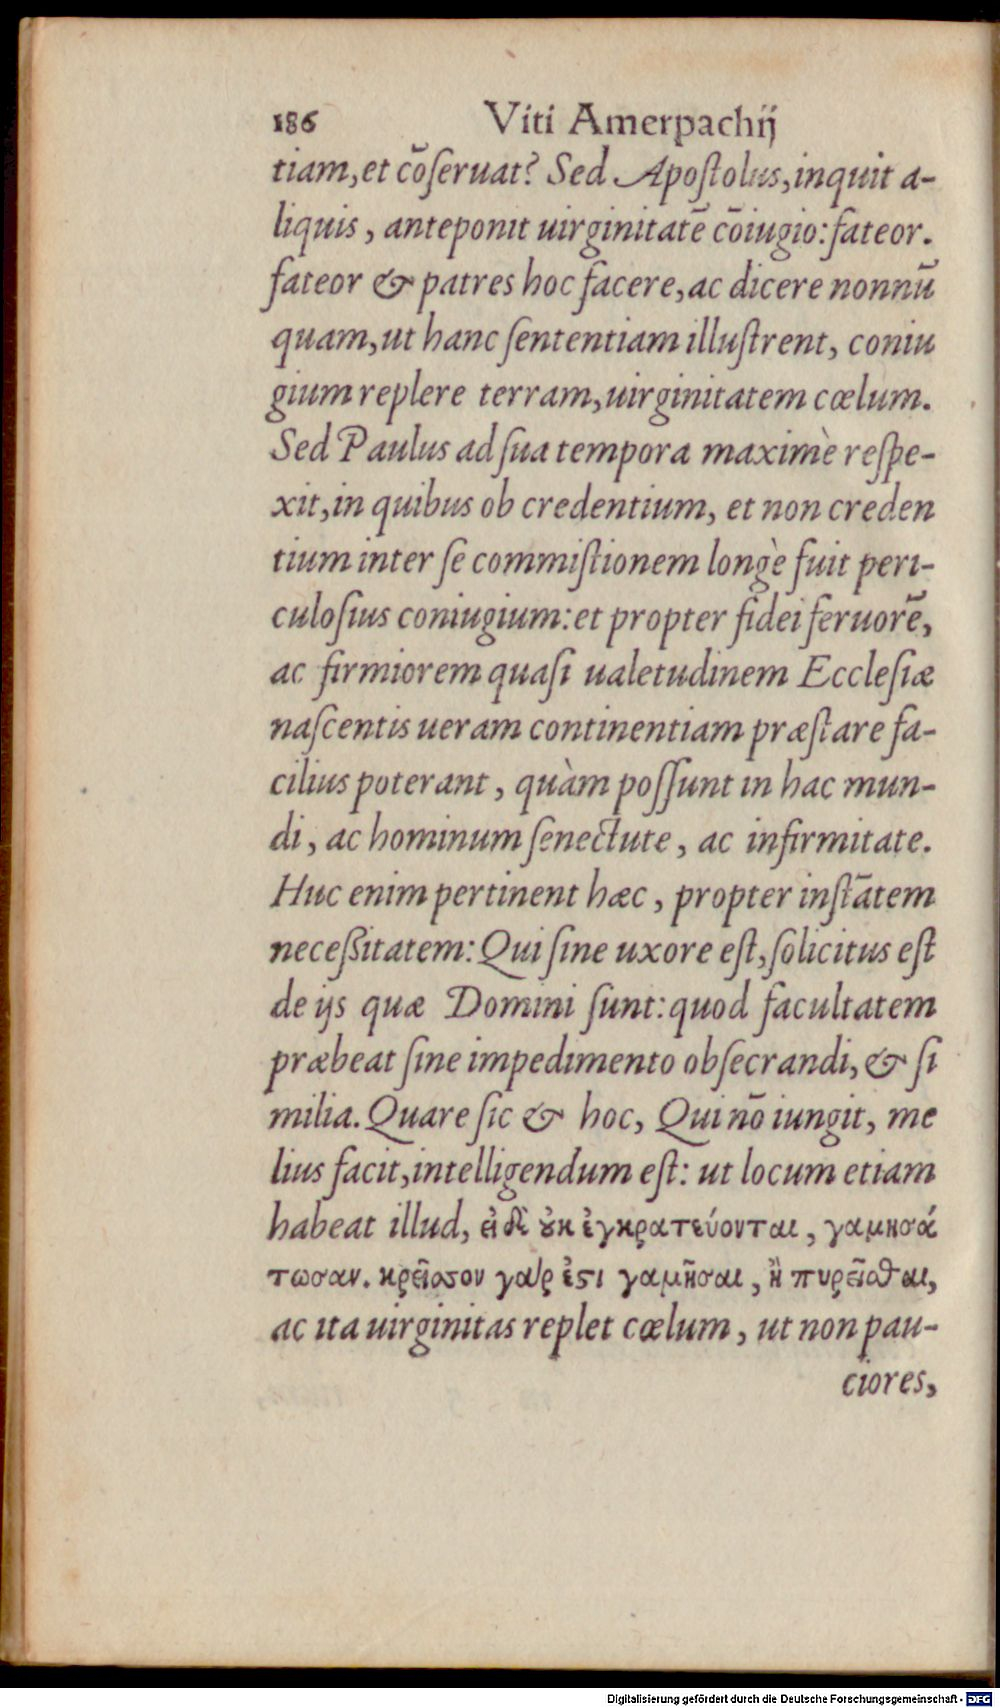 186 Viti Amerpachij
tiam,et cõſeruat? Sed Apoſtolus,inquit a-
liquis, anteponit uirginitatẽ cõiugio:fateor.
fateor & patres hoc facere,ac dicere nonnũ
quam,ut hanc ſententiam illuſtrent, coniu
gium replere terram,uirginitatem cœlum.
Sed Paulus ad ſua tempora maximè reſpe-
xit,in quibus ob credentium, et non creden
tium inter ſe commiſtionem longè fuit peri-
culoſius coniugium:et propter fidei feruorẽ,
ac firmiorem quaſi ualetudinem Eccleſiæ
naſcentis ueram continentiam præſtare fa-
cilius poterant, quàm poſſunt in hac mun-
di, ac hominum ſenectute, ac infirmitate.
Huc enim pertinent hæc, propter inſtãtem
neceßitatem: Qui ſine uxore eſt,ſolicitus eſt
de ijs quæ Domini ſunt:quod facultatem
præbeat ſine impedimento obſecrandi, & ſi
milia. Quare ſic & hoc, Qui nõ iungit, me
lius facit,intelligendum eſt: ut locum etiam
habeat illud, εἰ δὲ οὐκ ἐγκρατεύονται, γαμησά
τωσαν. κρεῖσσον γὰρ ἐστι γαμῆσαι, ἢ πυρεῖσθαι,
ac ita uirginitas replet cœlum, ut non pau-
ciores,
Digitalisierung gefördert durch die Deutsche Forschungsgemeinschaft - DFG